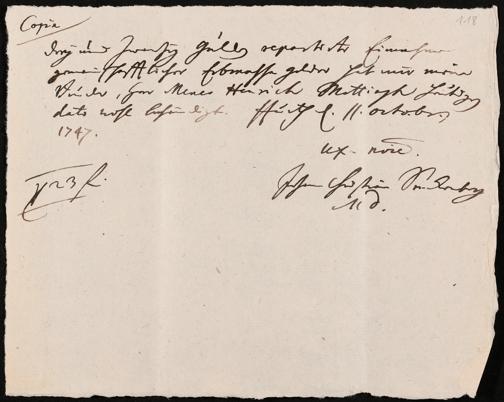 Copia
118
Drey und Zwantzig Gulden repartirte Einnahme
gemeinschafftlicher Erbmassa gelder hat mir mein
Bruder, Herr Meines Henrich Matthias
dato wohl behändigt. d. 11. octobris
1747.
ux. noie.
Johan Christian Senckenberg
M D.
23 f.